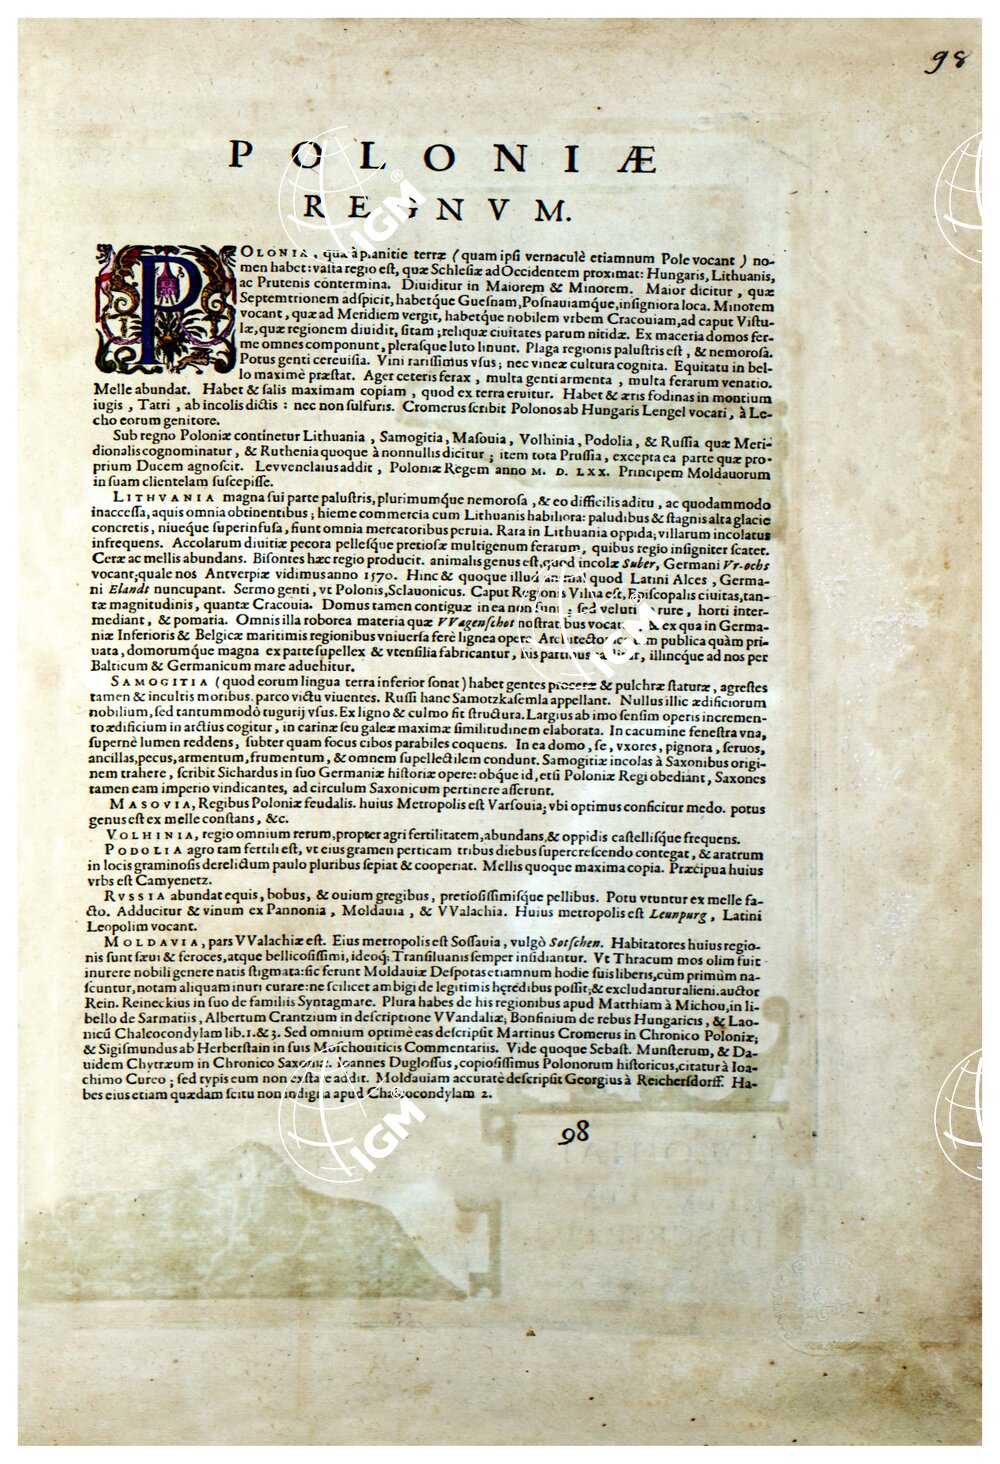 98
POLONIÆ
REGNVM.
POLONIA, quæ à planitie terræ (quam ipſi vernaculè etiamnum Pole vocant) no-
men habet: vaſta regio eſt, quæ Schleſiæ ad Occidentem proximat: Hungaris, Lithuanis,
ac Prutenis contermina. Diuiditur in Maiorem & Minorem. Maior dicitur, quæ
Septemtrionem adſpicit, habetq́ue Gueſnam, Poſnauiamq́ue, inſigniora loca. Minorem
vocant, quæ ad Meridiem vergit, habetq́ue nobilem vrbem Cracouiam, ad caput Viſtu-
læ, quæ regionem diuidit, ſitam; reliquæ ciuitates parum nitidæ. Ex maceria domos fer-
me omnes componunt, pleraſque luto linunt. Plaga regionis paluſtris eſt, & nemoroſa.
Potus genti cereuiſia. Vini rariſſimus vſus; nec vineæ cultura cognita. Equitatu in bel-
lo maximè præſtat. Ager ceteris ferax, multa genti armenta, multa ferarum venatio.
Melle abundat. Habet & ſalis maximam copiam, quod ex terra eruitur. Habet & æris fodinas in montium
iugis, Tatri, ab incolis dictis: nec non ſulfuris. Cromerus ſcribit Polonos ab Hungaris Lengel vocari, à Le-
cho eorum genitore.
Sub regno Poloniæ continetur Lithuania, Samogitia, Maſouia, Volhinia, Podolia, & Ruſſia quæ Meri-
dionalis cognominatur, & Ruthenia quoque à nonnullis dicitur; item tota Pruſſia, excepta ea parte quæ pro-
prium Ducem agnoſcit. Levvenclaius addit, Poloniæ Regem anno M. D. LXX. Principem Moldauorum
in ſuam clientelam ſuſcepiſſe.
LITHVANIA magna ſui parte paluſtris, plurimumq́ue nemoroſa, & eo difficilis aditu, ac quodammodo
inacceſſa, aquis omnia obtinentibus; hieme commercia cum Lithuanis habiliora: paludibus & ſtagnis alta glacie
concretis, niueq́ue ſuperinfuſa, fiunt omnia mercatoribus peruia. Rara in Lithuania oppida; villarum incolatus
infrequens. Accolarum diuitiæ pecora pelleſq́ue pretioſæ multigenum ferarum, quibus regio inſigniter ſcatet.
Ceræ ac mellis abundans. Biſontes hæc regio producit. animalis genus eſt, quod incolæ Suber, Germani Vr-ochs
vocant; quale nos Antverpiæ vidimus anno 1570. Hinc & quoque illud animal quod Latini Alces, Germa-
ni Elandt nuncupant. Sermo genti, vt Polonis, Sclauonicus. Caput Regionis Vilna eſt, Epiſcopalis ciuitas, tan-
tæ magnitudinis, quantæ Cracouia. Domus tamen contiguæ in ea non ſunt; ſed veluti rure, horti inter-
mediant, & pomaria. Omnis illa roborea materia quæ VVagenſchot noſtratibus vocatur, & ex qua in Germa-
niæ Inferioris & Belgicæ maritimis regionibus vniuerſa ferè lignea opera Architectonica tum publica quàm pri-
uata, domorumque magna ex parte ſupellex & vtenſilia fabricantur, his partibus cæditur, illincq́ue ad nos per
Balticum & Germanicum mare aduehitur.
SAMOGITIA (quod eorum lingua terra inferior ſonat) habet gentes proceræ & pulchræ ſtaturæ, agreſtes
tamen & incultis moribus, parco victu viuentes. Ruſſi hanc Samotzkaſemla appellant. Nullus illic ædificiorum
nobilium, ſed tantummodò tugurij vſus. Ex ligno & culmo fit ſtructura. Largius ab imo ſenſim operis incremen-
to ædificium in arctius cogitur, in carinæ ſeu galeæ maximæ ſimilitudinem elaborata. In cacumine feneſtra vna,
ſupernè lumen reddens, ſubter quam focus cibos parabiles coquens. In ea domo, ſe, vxores, pignora, ſeruos,
ancillas, pecus, armentum, frumentum, & omnem ſupellectilem condunt. Samogitiæ incolas à Saxonibus origi-
nem trahere, ſcribit Sichardus in ſuo Germaniæ hiſtoriæ opere: obq́ue id, etſi Poloniæ Regi obediant, Saxones
tamen eam imperio vindicantes, ad circulum Saxonicum pertinere aſſerunt.
MASOVIA, Regibus Poloniæ feudalis. huius Metropolis eſt Varſouia; vbi optimus conficitur medo. potus
genus eſt ex melle conſtans, &c.
VOLHINIA, regio omnium rerum, propter agri fertilitatem, abundans, & oppidis caſtelliſq́ue frequens.
PODOLIA agro tam fertili eſt, vt eius gramen perticam tribus diebus ſupercreſcendo contegat, & aratrum
in locis graminoſis derelictum paulo pluribus ſepiat & cooperiat. Mellis quoque maxima copia. Præcipua huius
vrbs eſt Camyenetz.
RVSSIA abundat equis, bobus, & ouium gregibus, pretioſiſſimiſq́ue pellibus. Potu vtuntur ex melle fa-
cto. Adducitur & vinum ex Pannonia, Moldauia, & VValachia. Huius metropolis eſt Leunpurg, Latini
Leopolim vocant.
MOLDAVIA, pars VValachiæ eſt. Eius metropolis eſt Soſſauia, vulgò Sotſchen. Habitatores huius regio-
nis ſunt ſæui & feroces, atque bellicoſiſſimi, ideoq; Tranſiluanis ſemper inſidiantur. Vt Thracum mos olim fuit
inurere nobili genere natis ſtigmata: ſic ferunt Moldauiæ Deſpotas etiamnum hodie ſuis liberis, cùm primùm na-
ſcuntur, notam aliquam inuri curare: ne ſcilicet ambigi de legitimis hęredibus poſſit; & excludantur alieni. auctor
Rein. Reineckius in ſuo de familiis Syntagmare. Plura habes de his regionibus apud Matthiam à Michou, in li-
bello de Sarmatiis, Albertum Crantzium in deſcriptione VVandaliæ; Bonfinium de rebus Hungaricis, & Lao-
nicū Chalcocondylam lib. 1. & 3. Sed omnium optimè eas deſcripſit Martinus Cromerus in Chronico Poloniæ;
& Sigiſmundus ab Herberſtain in ſuis Moſchouiticis Commentariis. Vide quoque Sebaſt. Munſterum, & Da-
uidem Chytræum in Chronico Saxoniæ. Ioannes Dugloſſus, copioſiſſimus Polonorum hiſtoricus, citatur à Ioa-
chimo Cureo; ſed typis eum non exſtare addit. Moldauiam accuratè deſcripſit Georgius à Reicherſdorff. Ha-
bes eius etiam quædam ſcitu non indigna apud Chalcocondylam 2.
98
IGM
IGM
IGM